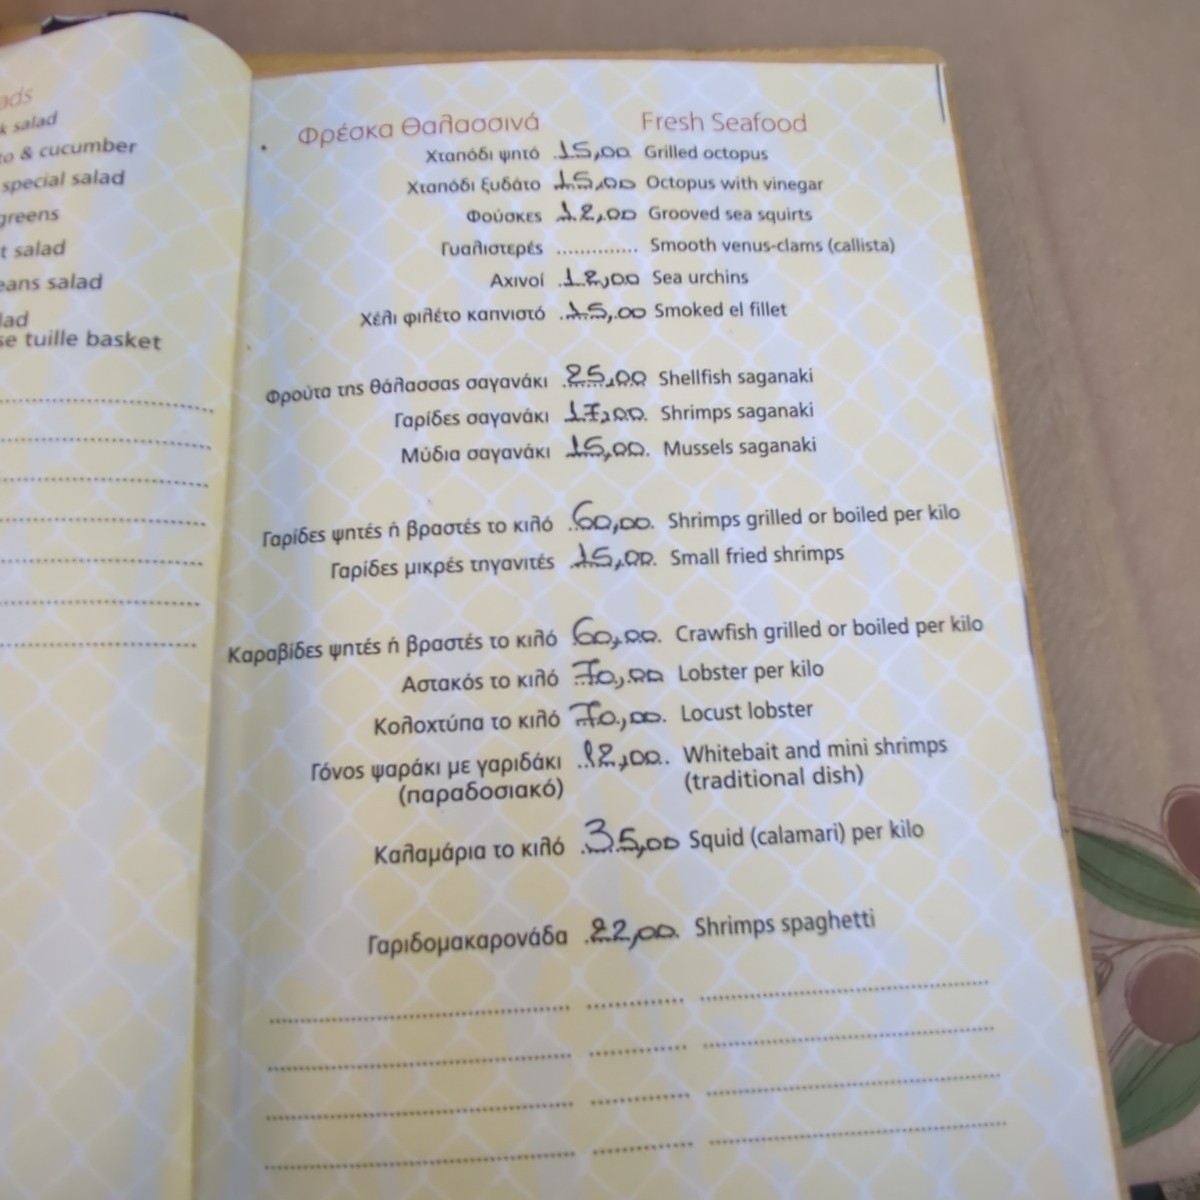 ads
k salad
to & cucumber
special salad
greens
t salad
eans salad
lad
se tuille basket
Φρέσκα Θαλασσινά Fresh Seafood
Χταπόδι ψητό 15,00 Grilled octopus
Χταπόδι ξυδάτο 15,00 Octopus with vinegar
Φούσκες 12,00 Grooved sea squirts
Γυαλιστερές .............. Smooth venus-clams (callista)
Αχινοί 12,00 Sea urchins
Χέλι φιλέτο καπνιστό 15,00 Smoked el fillet
Φρούτα της θάλασσας σαγανάκι 25,00 Shellfish saganaki
Γαρίδες σαγανάκι 17,00 Shrimps saganaki
Μύδια σαγανάκι 15,00 Mussels saganaki
Γαρίδες ψητές ή βραστές το κιλό 60,00 Shrimps grilled or boiled per kilo
Γαρίδες μικρές τηγανιτές 15,00 Small fried shrimps
Καραβίδες ψητές ή βραστές το κιλό 60,00 Crawfish grilled or boiled per kilo
Αστακός το κιλό 70,00 Lobster per kilo
Κολοχτύπα το κιλό 70,00 Locust lobster
Γόνος ψαράκι με γαριδάκι 12,00 Whitebait and mini shrimps
(παραδοσιακό) (traditional dish)
Καλαμάρια το κιλό 35,00 Squid (calamari) per kilo
Γαριδομακαρονάδα 22,00 Shrimps spaghetti